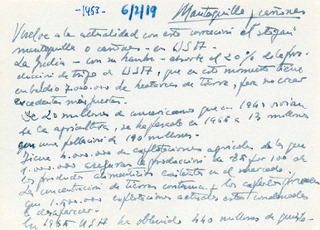 -1453- 6/2/19 Mantequilla y cañones
Vuelve a la actualidad con este comercio el slogan
mantequilla o cañones - en USA.
La India - con su hambre - absorbe el 20% de la pro-
ducción de trigo de USA, que en este momento tiene
en baldío 7.000.000 de hectáreas de tierra, para no crear
excedentes
De 20 millones de americanos que en 1941 vivían
de la agricultura, se ha pasado en 1965 a 13 millones
con una población de 190 millones.
Tiene 4.000.000 de explotaciones agrícolas de las que
1.000.000 aseguran la producción de 85 por 100 de
los productos alimenticios existentes en el mercado.
La concentración de tierras continua y los expertos
que 1.500.000 explotaciones actuales están condenadas
a desaparecer.
En 1965 USA ha obtenido 440 millones de